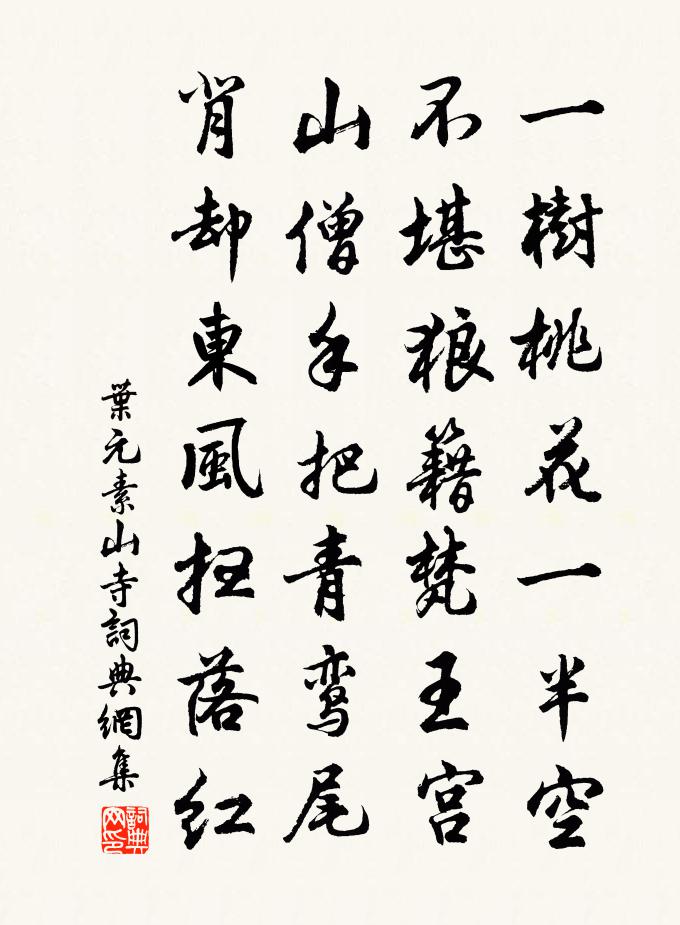 一樹桃花一半空
不堪狼籍梵王宫
山僧手把青鸾尾
肖却東風扫落红
葉元素山寺詞典網集
詞典
网印